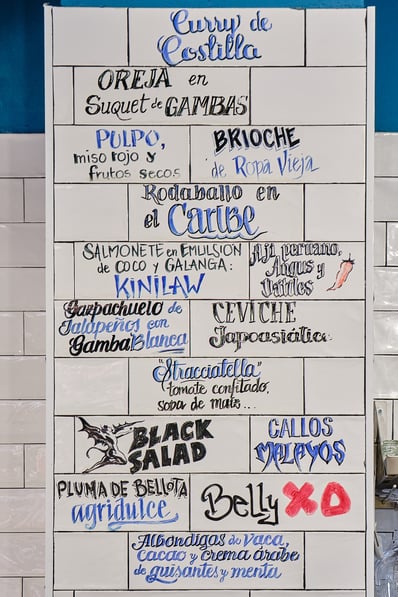 Curry de
Costilla
OREJA en
Suquet de GAMBAS
PULPO,
miso rojo y
frutos secos
BRIOCHE
de Ropa Vieja
Rodaballo en
el Caribe
SALMONETE en EMULSION
de COCO y GALANGA:
KINILAW
Aji peruano,
Angus y
Gazpachuelo de
Jalapeños con
Gamba Blanca
CEVICHE
Japoasiático
"Stracciatella"
tomate confitado,
soba de mats...
BLACK
SALAD
CALLOS
MALAYOS
PLUMA DE BELLOTA
agridulce
Belly XO
Albondigas de vaca,
cacao y crema árabe
de guisantes y menta